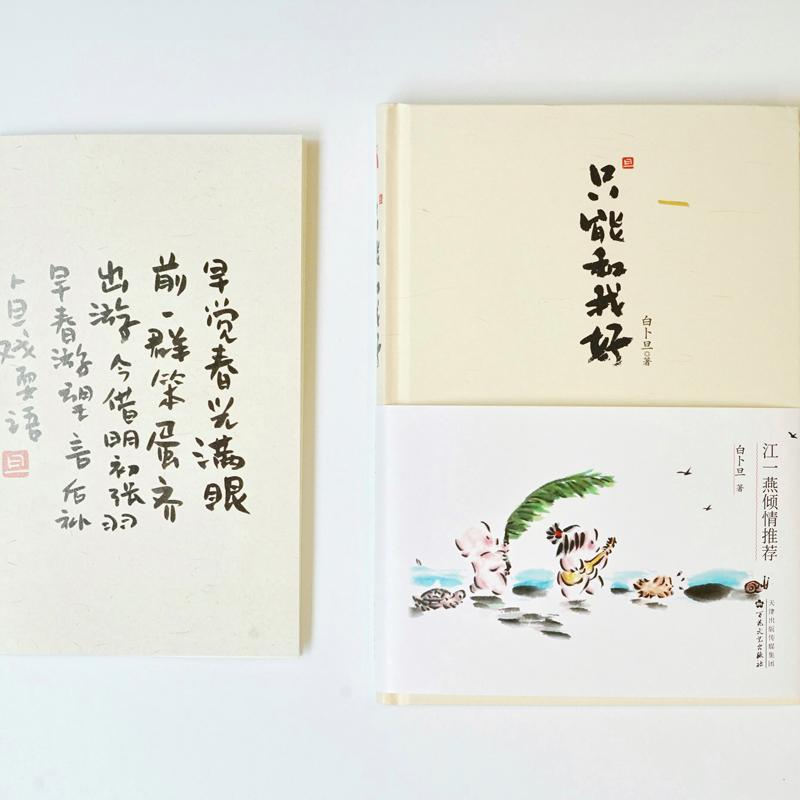 早觉春光满眼
前一群笨蛋齐
出游 今借明初张羽
早春游望 后补
卜旦戏耍语
旦
旦
只能和我好
白卜旦◎著
能和我好
江一燕倾情推荐
白卜旦 著
天津出版传媒集团
百花文艺出版社